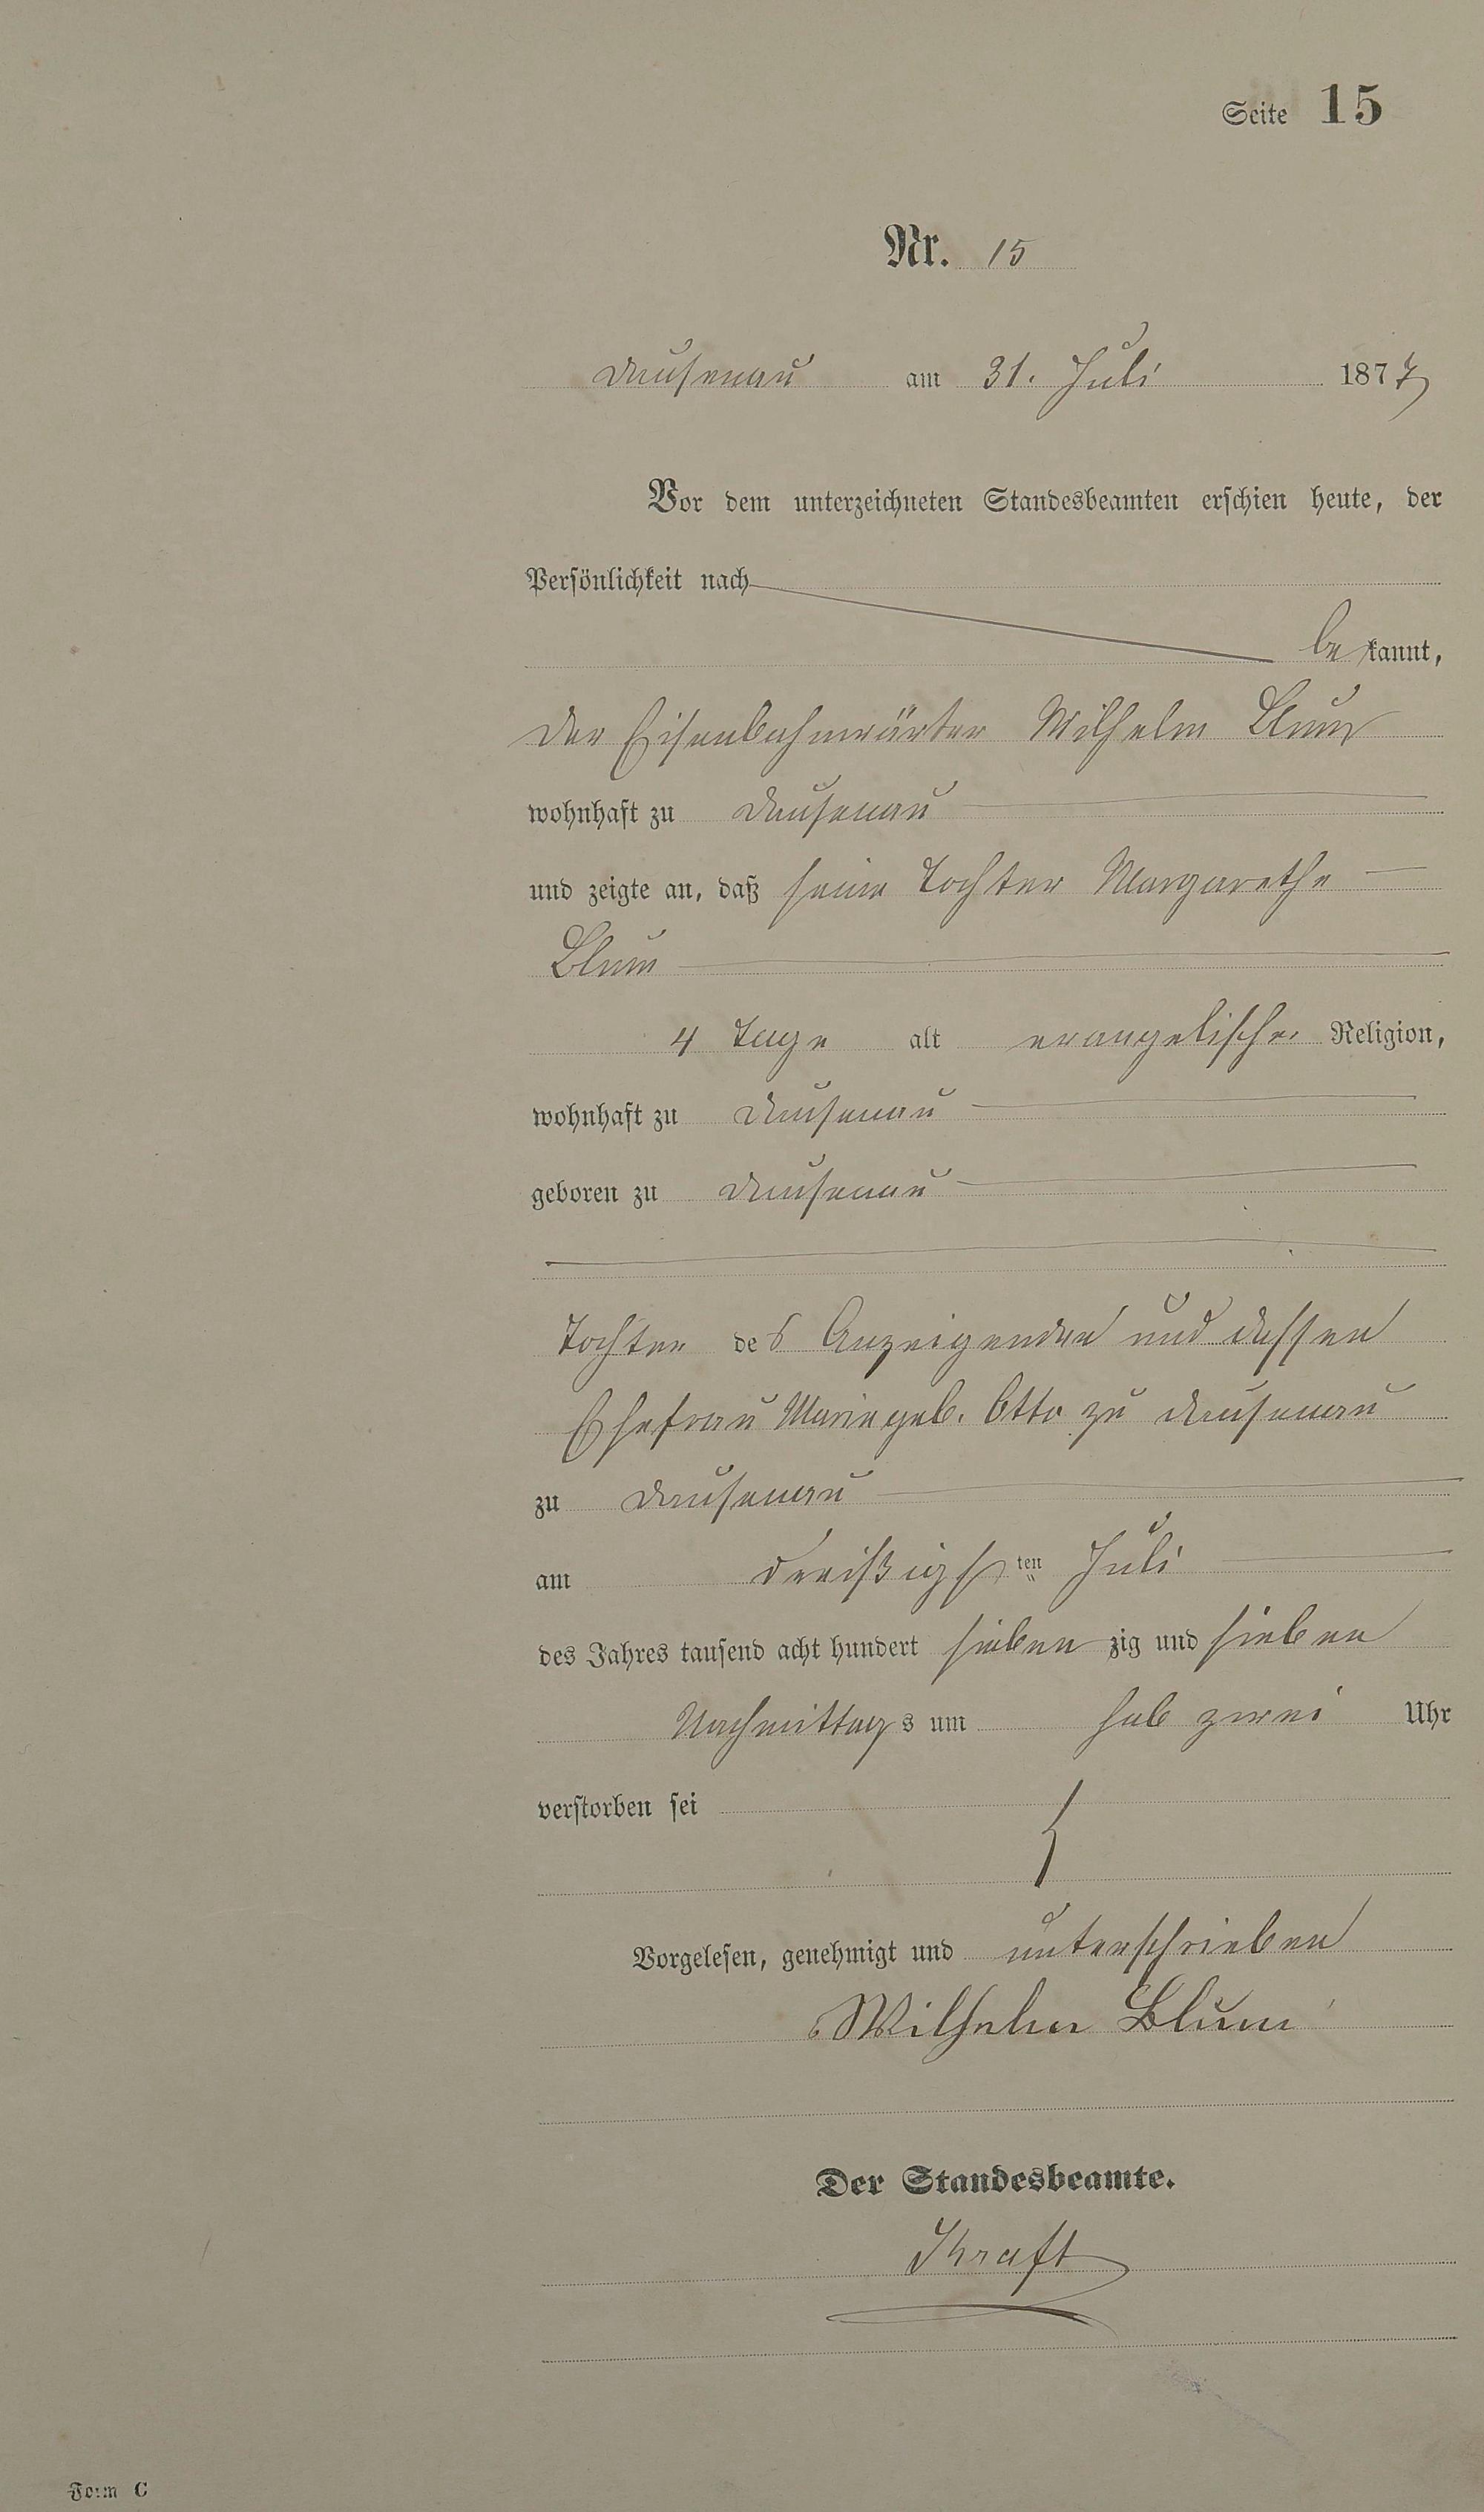 Seite 15
Nr. 15
Dausenau am 31. Juli 1877
Vor dem unterzeichneten Standesbeamten erschien heute, der
Persönlichkeit nach
be kannt,
der Eisenbahnwärter Wilhelm Blum
wohnhaft zu Dausenau
und zeigte an, daß seine Tochter Margarethe
Blum
4 Tage alt evangelischer Religion,
wohnhaft zu Dausenau
geboren zu Dausenau
Tochter des Anzeigenden und dessen
Ehefrau Marie geb. Otto zu Dausenau
zu Dausenau
am dreißigsten Juli
des Jahres tausend acht hundert siebenzig und sieben
Nachmittags um halb zwei Uhr
verstorben sei
Vorgelesen, genehmigt und unterschrieben
Wilhelm Blum
Der Standesbeamte.
Kraft
Form C